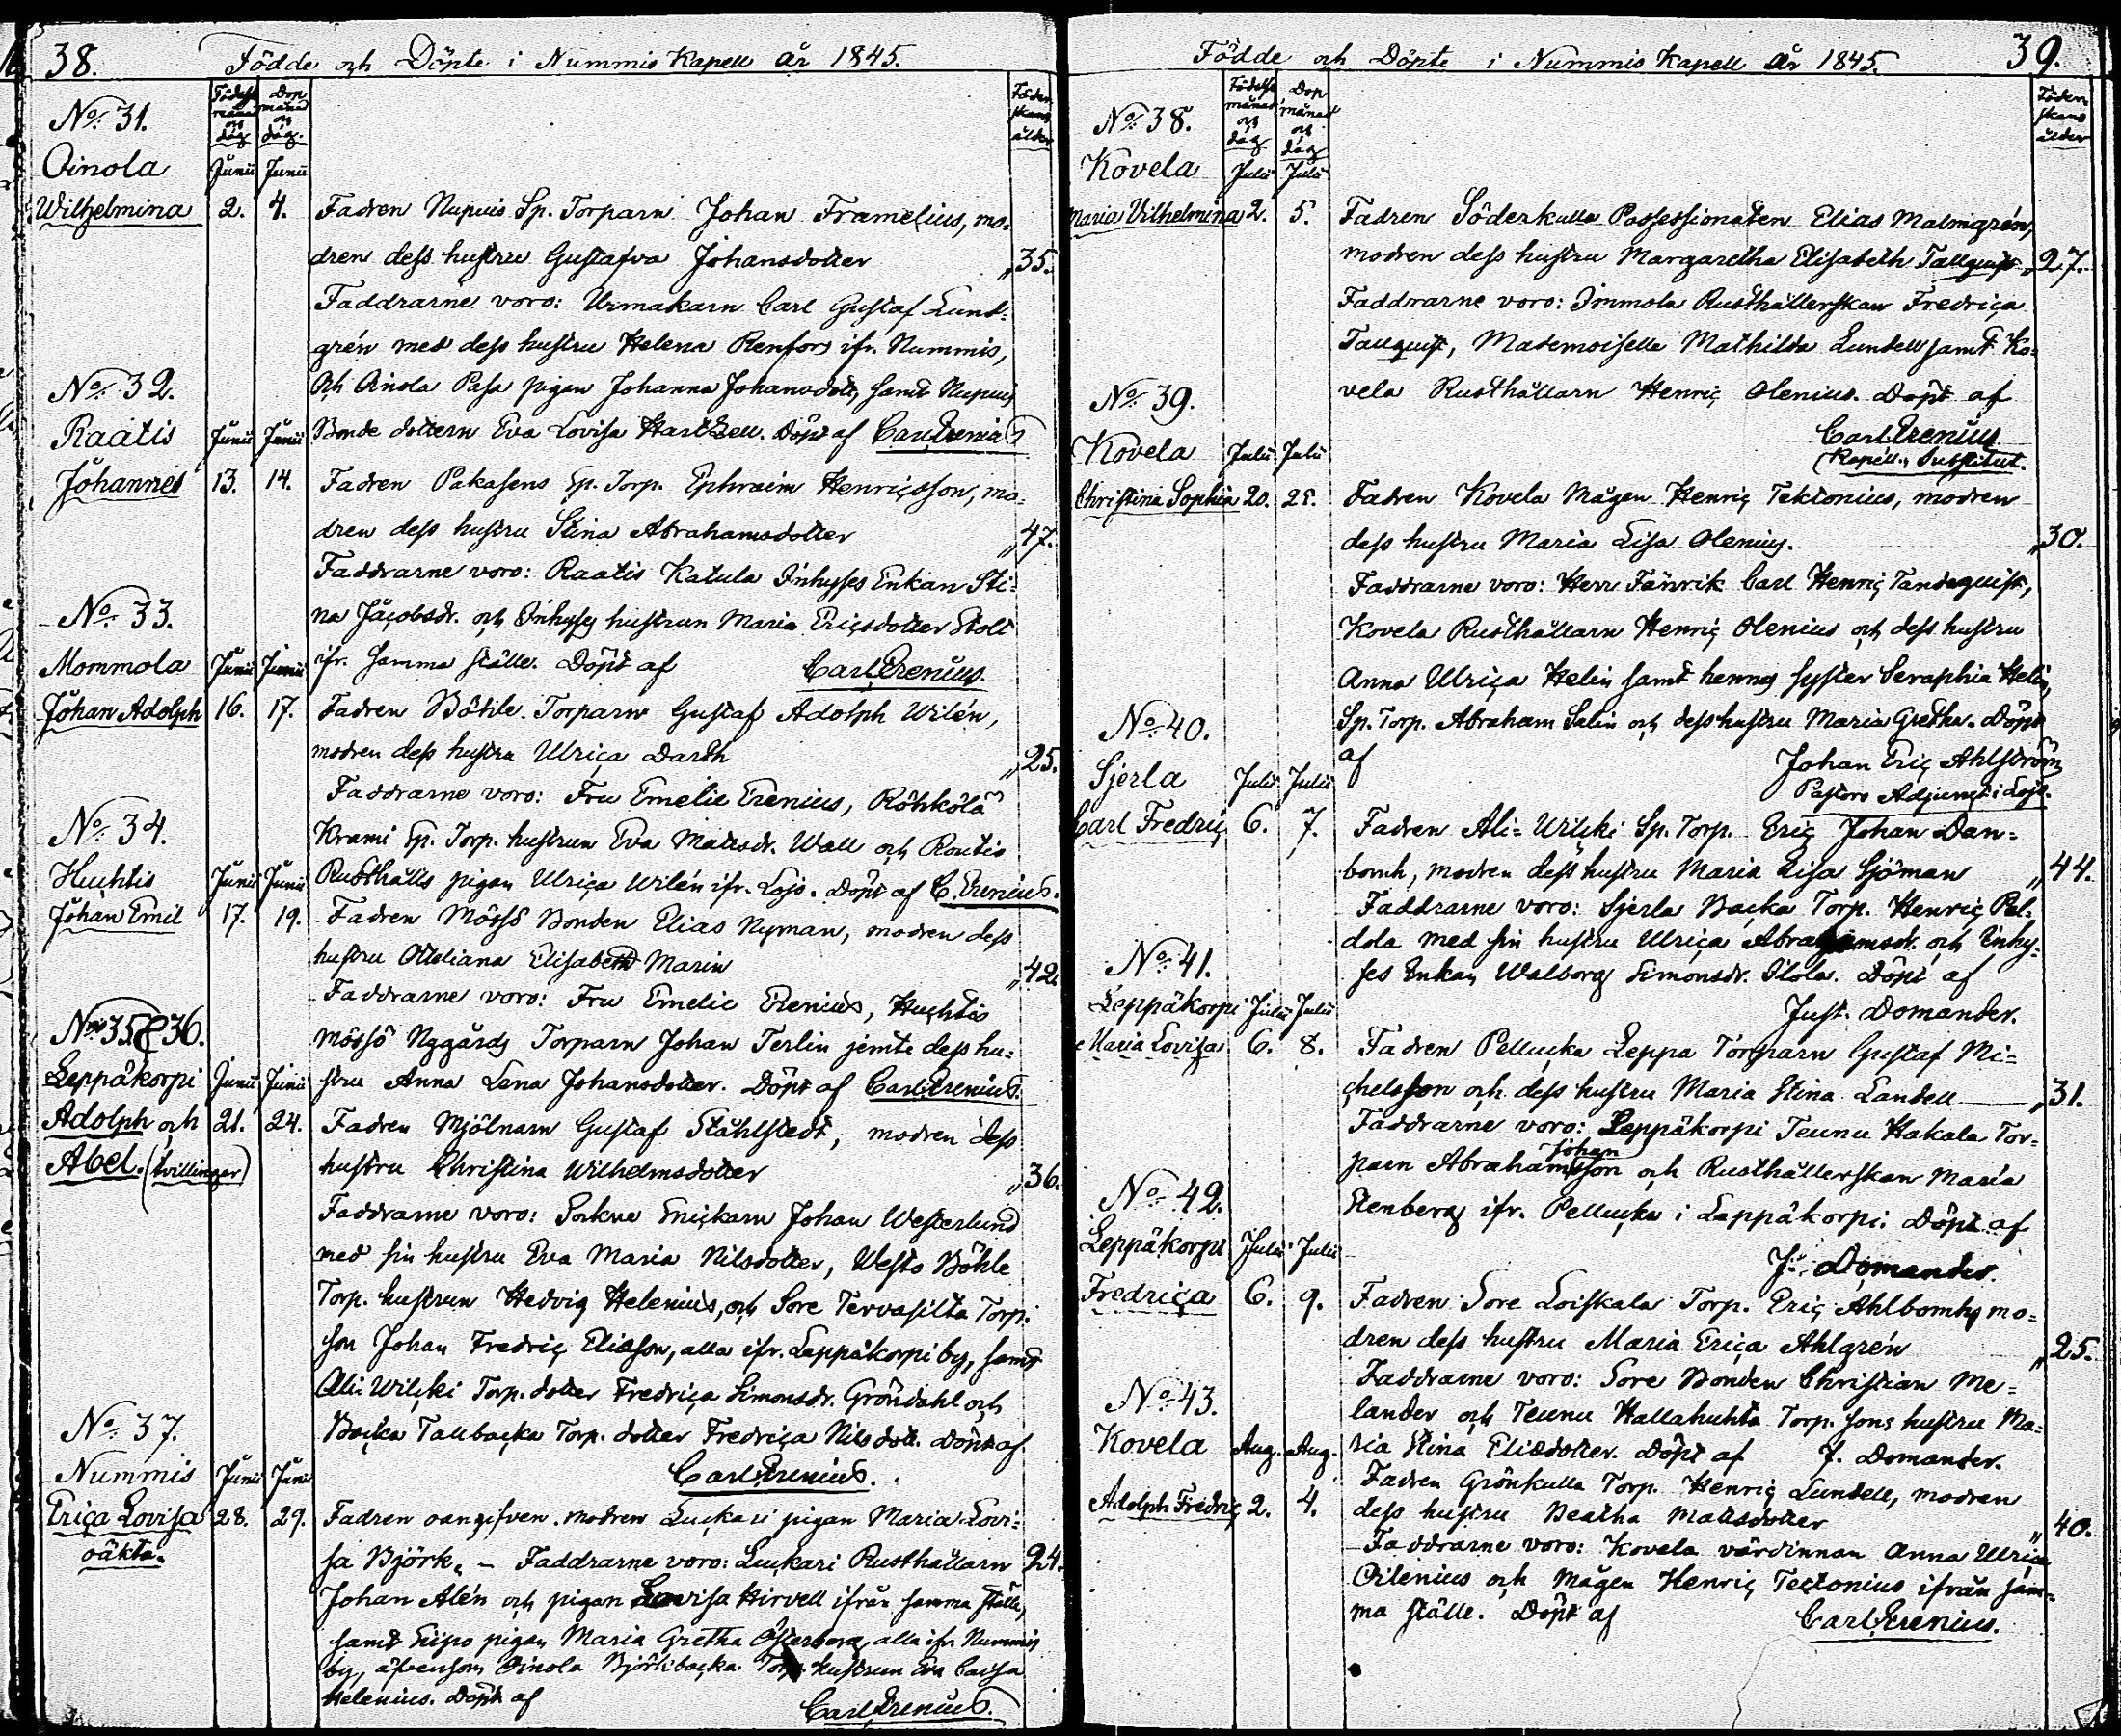 38.
Födde och Döpte i Nummis Kapell år 1845.
Födelse månad och dag
Dop månad och dag.
Föderskans ålder
No. 31.
Oinola Junii Junii
Wilhelmina 2. 4. Fadren Nupuis Sp. Torparn Johan Framelius, mo-
dren dess hustru Gustafva Johansdotter „35.
Faddrarne voro: Urmakarn Carl Gustaf Lund-
grén med dess hustru Helena Renfors ifr. Nummis,
No. 32.
och Oinola Pasa pigan Johanna Johansdott, samt Nupuis
Raatis Junii Junii Bonde dottern Eva Lovisa Hartzell. Döpt af Carl Erenius
Johannes 13. 14. Fadren Pakasens Sp. Torp. Ephraim Henricsson, mo-
dren dess hustru Stina Abrahamsdotter „47.
Faddrarne voro: Raatis Katula Inhyses Enkan Sti-
No. 33.
na Jacobsdr. och Inhyses hustrun Maria Ericsdotter Stolt
Mommola Junii Junii ifr. samma ställe. Döpt af Carl Erenius.
Johan Adolph 16. 17. Fadren Böhle Torparn Gustaf Adolph Wilén,
modren dess hustru Ulrica Darth „25.
Faddrarne voro: Fru Emelie Erenius, Röhkölä
No. 34.
Krami Sp. Torp. hustrun Eva Matisdr. Wall och Routis
Huhtis Junii Junii Rusthålls pigan Ulrica Wilén ifr. Lojo. Döpt af C. Erenius.
Johan Emil 17. 19. Fadren Mössö Bonden Elias Nyman, modren dess
hustru Ottiliana Elisabeth Marin „42.
Faddrarne voro: Fru Emelie Erenius, Huhtis
No. 35 & 36.
Mössö Nygårds Torparn Johan Terlin jemte dess hu-
Leppäkorpi Junii Junii stru Anna Lena Johansdotter. Döpt af Carl Erenius.
Adolph och 21. 24. Fadren Mjölnarn Gustaf Ståhlstedt, modren dess
Abel. (tvillingar) hustru Christina Wilhelmsdotter „36.
Faddrarne voro: Sokne Snickarn Johan Westerlund
med sin hustru Eva Maria Nilsdotter, Westo Böhle
Torp. hustrun Hedvig Helenius, och Sore Tervasilta Torp.
son Johan Fredric Eliasson, alla ifr. Leppäkorpi by, samt
Ali-Wilcki Torp. dotter Fredrica Simonsdr. Gröndahl och
No. 37.
Backa Tallbacka Torp. dotter Fredrica Nilsdott. Döpt af
Nummis Junii Junii Carl Erenius.
Erica Lovisa 28. 29. Fadren oangifven. modren Luckari pigan Maria Lovi-
oäkta.
sa Björk. – Faddrarne voro: Luckari Rusthållarn 24.
Johan Alén och pigan Lovisa Hirvell ifrån samma ställe,
samt Sipo pigan Maria Gretha Österberg, alla ifr. Nummis
by, äfvensom Oinola Björkbacka Torp. hustrun Eva Caisa
Helenius. Döpt af Carl Erenius.
39.
Födde och Döpte i Nummis Kapell år 1845.
Födelse månad och dag
Dop månad och dag
Föderskans ålder
No. 38.
Kovela Julii Julii
Maria Vilhelmina 2. 5. Fadren Söderkulla Possessionaten Elias Malmgrén,
modren dess hustru Margaretha Elisabeth Tallquist „27.
Faddrarne voro: Immola Rusthållerskan Fredrica
Tallquist, Mademoiselle Mathilda Lundell samt Ko-
No. 39.
vela Rusthållarn Henric Olenius. Döpt af
Carl Erenius
Kapell. Substitut.
Kovela Julii Julii
Christina Sophia 20. 25. Fadren Kovela Mågen Henric Tektonius, modren
dess hustru Maria Lisa Olenius. „30.
Faddrarne voro: Herr Fänrik Carl Henric Tandequist,
Kovela Rusthållarn Henric Olenius och dess hustru
Anna Ulrica Helin samt hennes syster Seraphia Helin,
No. 40.
Sp. Torp. Abraham Salin och dess hustru Maria Gretha. Döpt
af Johan Eric Ahlström
Pastors Adjunct i Lojo.
Sjerla Julii Julii
Carl Fredric 6. 7. Fadren Ali-Wilcki Sp. Torp. Eric Johan Dan-
bomh, modren dess hustru Maria Lisa Sjöman „44.
Faddrarne voro: Sjerla Backa Torp. Henric Pel-
No. 41.
dola med sin hustru Ulrica Abrahamsdr. och Inhy-
ses Enkan Walborg Simonsdr. Ilola. Döpt af
Just. Domander.
Leppäkorpi Julii Julii
Maria Lovisa 6. 8. Fadren Pellucka Leppa Torparn Gustaf Mi-
chelsson och dess hustru Maria Stina Landell „31.
Faddrarne voro: Leppäkorpi Teunu Hakala Tor-
parn Johan Abrahamsson och Rusthållerskan Maria
No. 42.
Stenberg ifr. Pellucka i Leppäkorpi. Döpt af
J. Domander.
Leppäkorpi Julii Julii
Fredrica 6. 9. Fadren Sore Loiskala Torp. Eric Ahlbomh, mo-
dren dess hustru Maria Erica Ahlgrén „25.
Faddrarne voro: Sore Bonden Christian Me-
No. 43.
lander och Teunu Hallahuhta Torp. sons hustru Ma-
Kovela Aug. Aug. ria Stina Eliedotter. Döpt af J. Domander.
Adolph Fredric 2. 4. Fadren Grönkulla Torp. Henric Lundell, modren
dess hustru Beatha Matisdotter „40.
Faddrarne voro: Kovela värdinnan Anna Ulrica
Oilenius och mågen Henric Tectonius ifrån sam-
ma ställe. Döpt af Carl Erenius.